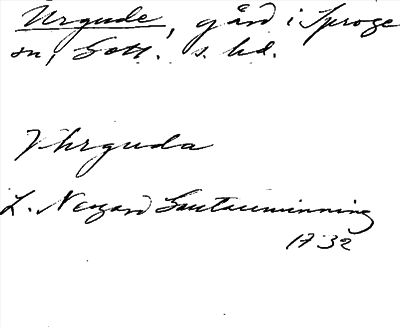 Urgude, gård i Sproge
sn, Gotl. s. hd.
Vhrguda
L. Neogard Gautauminning
1732